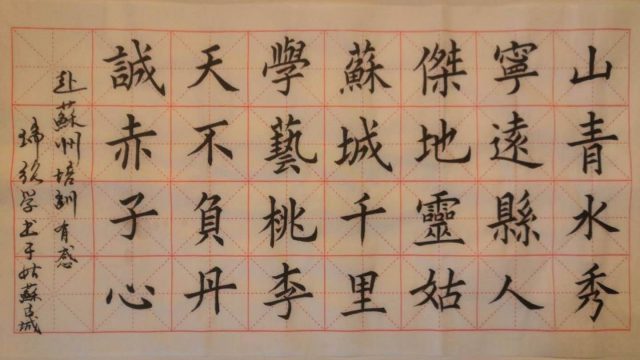 山青水秀
寧遠縣人
傑地靈姑
蘇城千里
學藝桃李
天不負丹
誠赤子心
赴蘇州培訓有感
学书于姑蘇古城